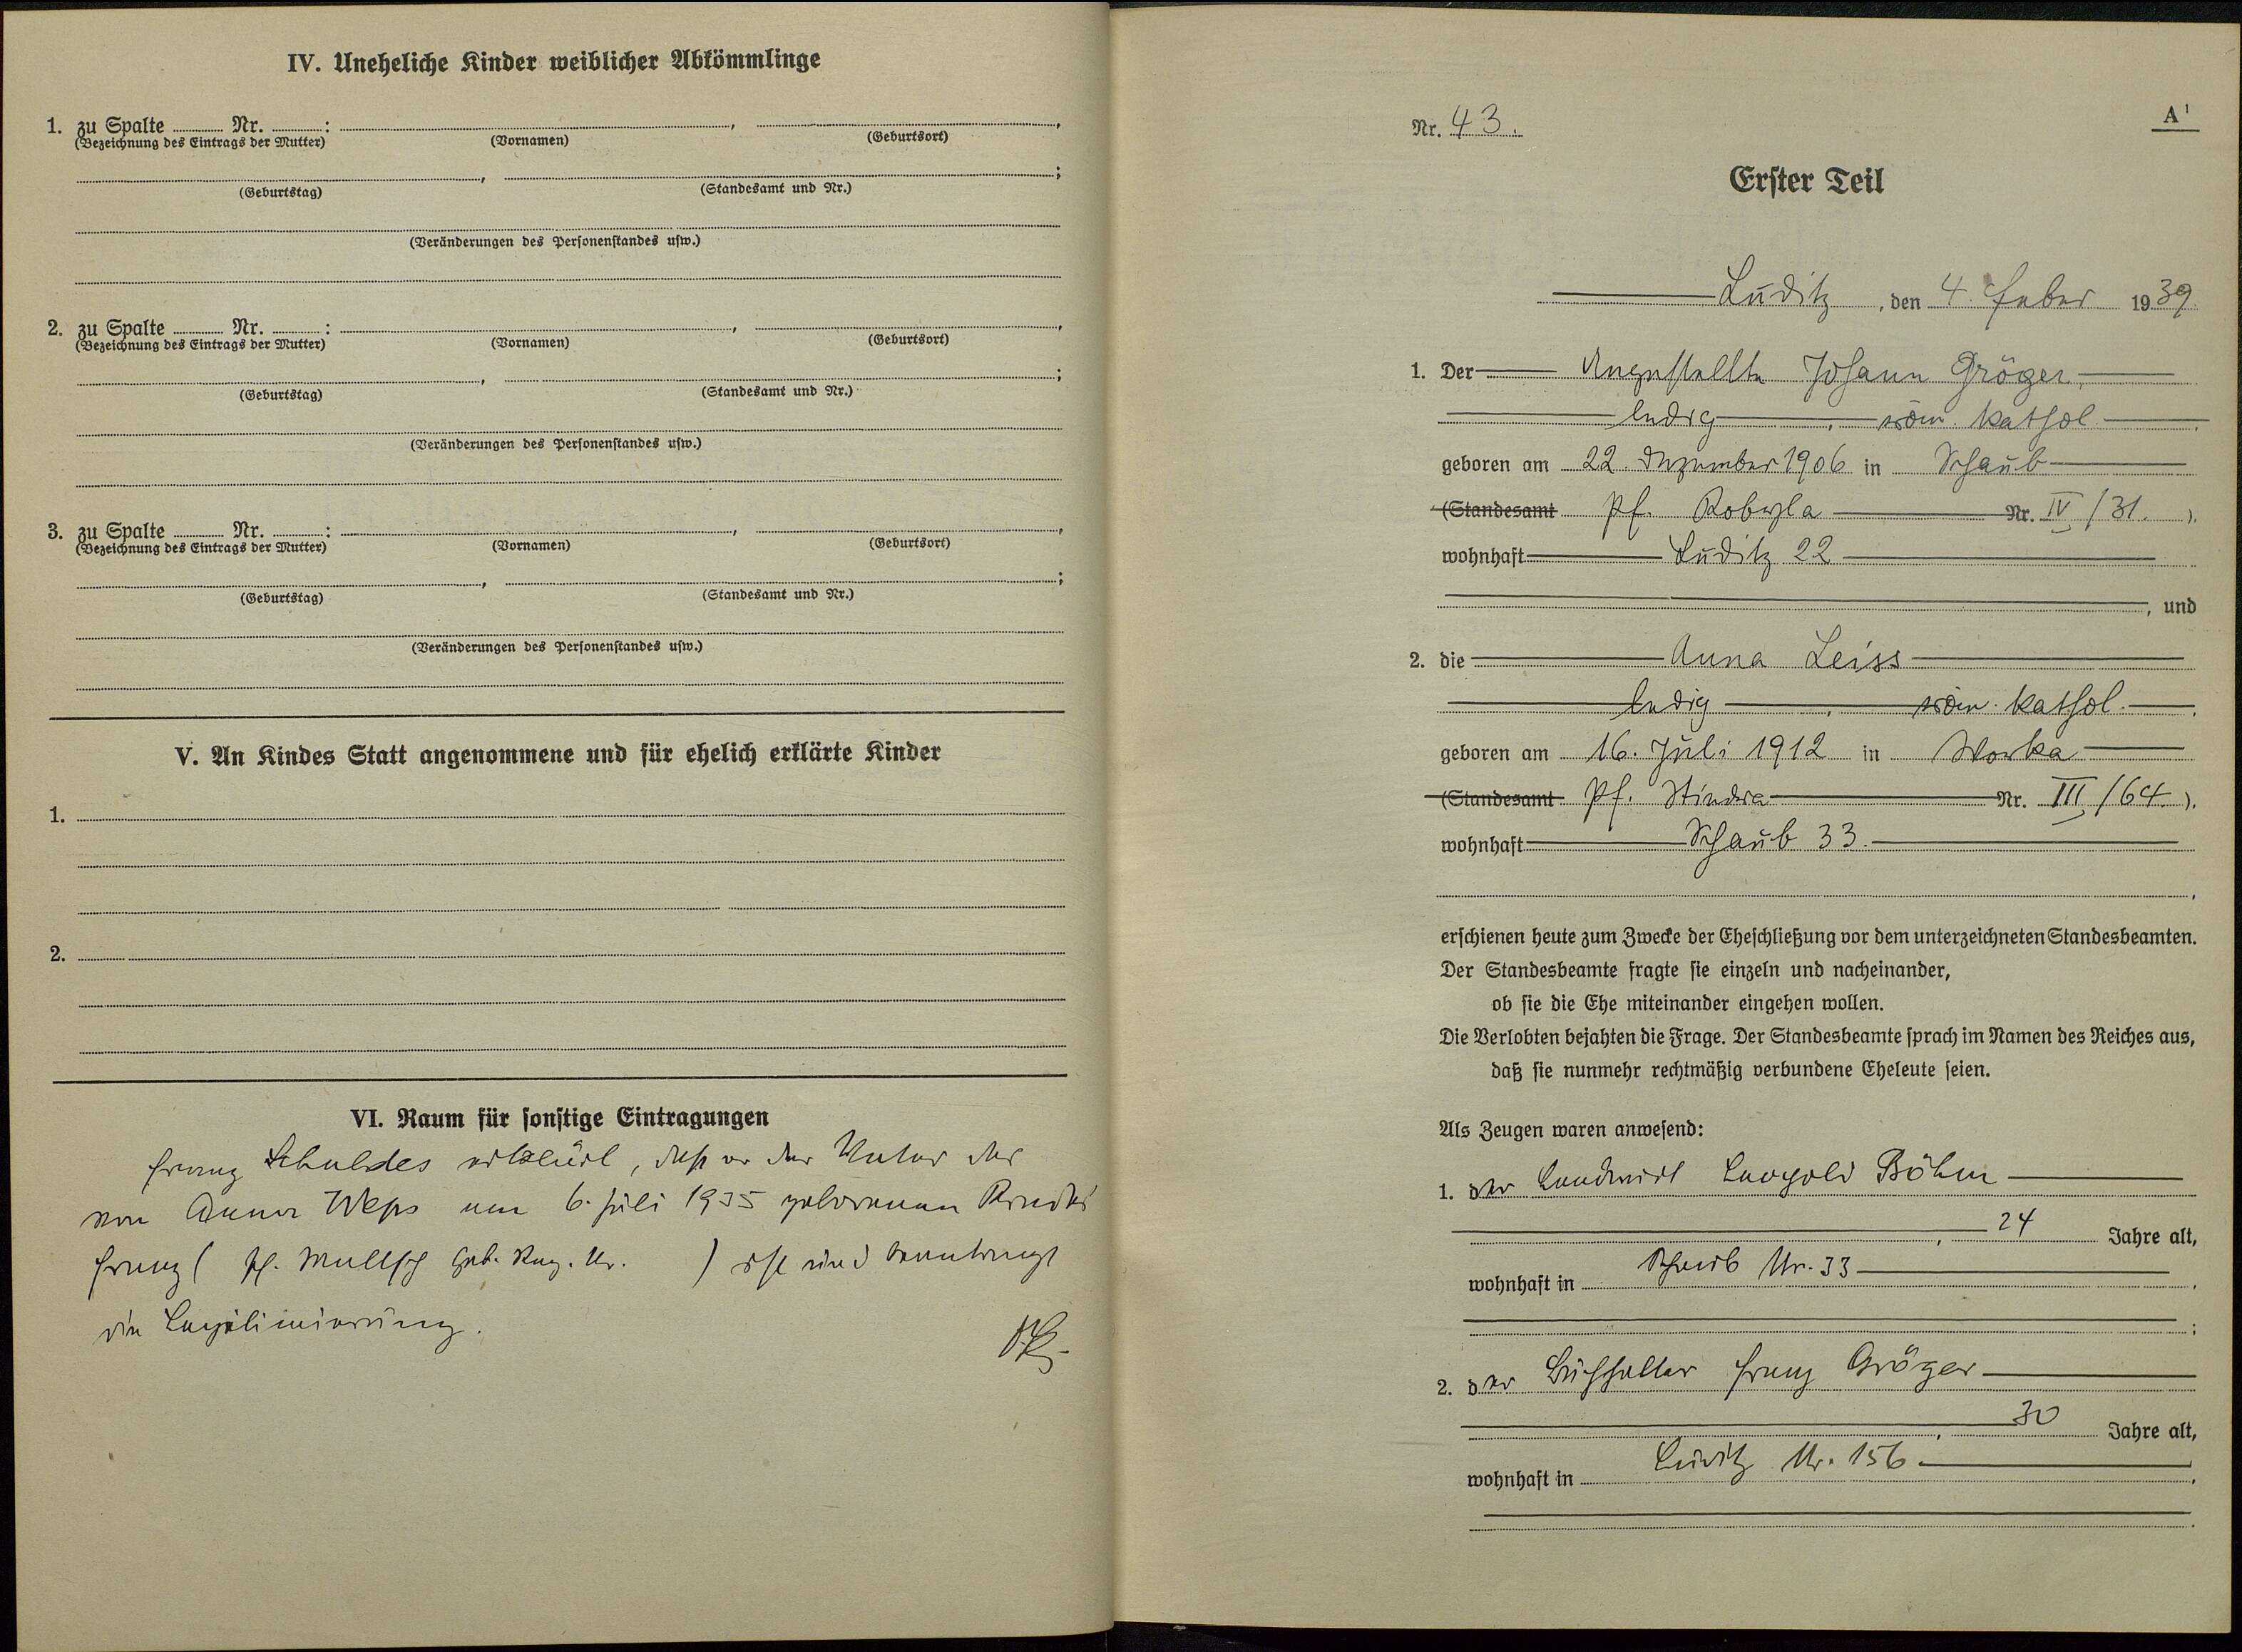 IV. Uneheliche Kinder weiblicher Abkömmlinge
1. zu Spalte ........ Nr. ........ : ........, ........,
(Bezeichnung des Eintrags der Mutter) (Vornamen) (Geburtsort)
........, ........;
(Geburtstag) (Standesamt und Nr.)
(Veränderungen des Personenstandes usw.)
2. zu Spalte ........ Nr. ........ : ........, ........,
(Bezeichnung des Eintrags der Mutter) (Vornamen) (Geburtsort)
........, ........;
(Geburtstag) (Standesamt und Nr.)
(Veränderungen des Personenstandes usw.)
3. zu Spalte ........ Nr. ........ : ........, ........,
(Bezeichnung des Eintrags der Mutter) (Vornamen) (Geburtsort)
........, ........;
(Geburtstag) (Standesamt und Nr.)
(Veränderungen des Personenstandes usw.)
V. An Kindes Statt angenommene und für ehelich erklärte Kinder
1.
2.
VI. Raum für sonstige Eintragungen
Franz Schuldes erklärt, daß er der Vater des
von Anna Weps am 6. Juli 1935 geborenen Kindes
Franz (Pf. Geb. Reg. Nr. ) ist und beantragt
die Legitimierung.
Nr. 43.
A¹
Erster Teil
Luditz, den 4. Feber 1939
1. Der Angestellte Johann Gröger,
ledig, röm. kathol.
geboren am 22. Dezember 1906 in Schaub
(Standesamt Pf. Kobyla Nr. IV/31.).
wohnhaft Luditz 22
, und
2. die Anna Leiss
ledig, röm. kathol.
geboren am 16. Juli 1912 in Worka
(Standesamt Pf. Nr. III/64.).
wohnhaft Schaub 33.
erschienen heute zum Zwecke der Eheschließung vor dem unterzeichneten Standesbeamten.
Der Standesbeamte fragte sie einzeln und nacheinander,
ob sie die Ehe miteinander eingehen wollen.
Die Verlobten bejahten die Frage. Der Standesbeamte sprach im Namen des Reiches aus,
daß sie nunmehr rechtmäßig verbundene Eheleute seien.
Als Zeugen waren anwesend:
1. der Landwirt Leopold Böhm
, 24 Jahre alt,
wohnhaft in Schaub Nr. 33
2. der Buchhalter Franz Gröger
, 30 Jahre alt,
wohnhaft in Luditz Nr. 156